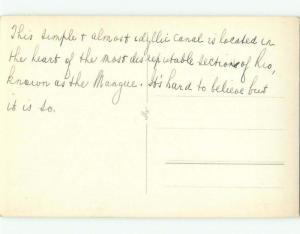 This simple + almost idyllic canal is located in
the heart of the most disreputable sections of Rio,
known as the Mangue. It's hard to believe but
it is so.